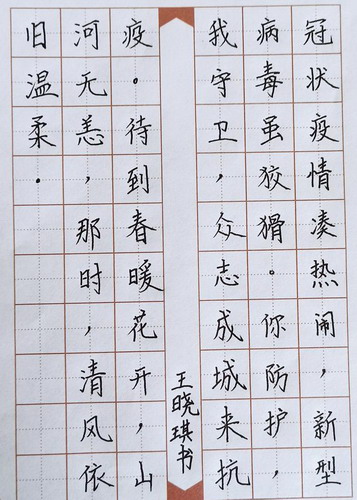 冠状疫情凑热闹，新型
病毒虽狡猾。你防护，
我守卫，众志成城来抗
疫。待到春暖花开，山
河无恙，那时，清风依
旧温柔.
王晓琪书